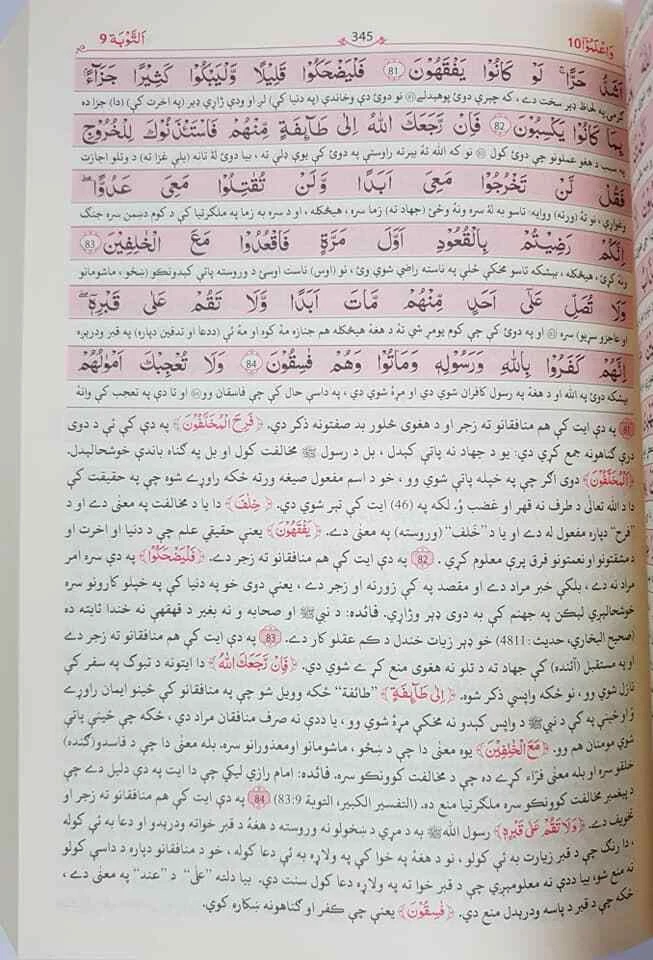 وَاعْلَمُوْٓا 10 345 اَلتَّوْبَة 9
اَشَدُّ حَرًّا ؕ لَوْ كَانُوْا يَفْقَهُوْنَ 81 فَلْيَضْحَكُوْا قَلِيْلًا وَّلْيَبْكُوْا كَثِيْرًا ۚ جَزَآءًۢ
ګرمۍ په لحاظ ډېر سخت دے ، که چېرې دوئ پوهېدلے نو دوئ دې وخاندي (په دنيا کې) لږ او ودې ژاړي ډېر (په اخرت کې) (دا) جزا ده
بِمَا كَانُوْا يَكْسِبُوْنَ 82 فَاِنْ رَّجَعَكَ اللّٰهُ اِلٰى طَآىِٕفَةٍ مِّنْهُمْ فَاسْتَاْذَنُوْكَ لِلْخُرُوْجِ
په سبب د هغو عملونو چې دوئ کول نو که الله تۀ بېرته راوستې په دوئ کې يوې ډلې ته ، بيا دوئ تا نه (بلې غزا ته) د وتلو اجازت
فَقُلْ لَّنْ تَخْرُجُوْا مَعِىَ اَبَدًا وَّلَنْ تُقَاتِلُوْا مَعِىَ عَدُوًّا ؕ
وغواړي ، نو تۀ (ورته) ووايه: تاسو به لۀ سره ونۀ وځئ (جهاد ته) زما سره ، هيڅکله ، او د سره به زما په ملګرتيا کې د کوم دښمن سره جنګ
اِنَّكُمْ رَضِيْتُمْ بِالْقُعُوْدِ اَوَّلَ مَرَّةٍ فَاقْعُدُوْا مَعَ الْخٰلِفِيْنَ 83
ونۀ کړئ ، هيڅکله ، بېشکه تاسو مخکې ځلې په ناسته راضي شوي وئ ، نو (اوس) ناست اوسئ د وروسته پاتې کېدونکو (ښځو ، ماشومانو
وَلَا تُصَلِّ عَلٰٓى اَحَدٍ مِّنْهُمْ مَّاتَ اَبَدًا وَّلَا تَقُمْ عَلٰى قَبْرِهٖ ؕ
او عاجزو سړيو) سره او په دوئ کې چې کوم يو مړ شي تۀ د هغۀ هيڅکله هم جنازه مۀ کوه او مۀ ئې (د دعا او تدفين دپاره) په قبر ودرېږه
اِنَّهُمْ كَفَرُوْا بِاللّٰهِ وَرَسُوْلِهٖ وَمَاتُوْا وَهُمْ فٰسِقُوْنَ 84 وَلَا تُعْجِبْكَ اَمْوَالُهُمْ
بېشکه دوئ په الله او د هغۀ په رسول کافران شوي دي او مړۀ شوي دي ، په داسې حال کې چې فاسقان وو او تا دې په تعجب کې وانۀ
81 په دې ايت کې هم منافقانو ته زجر او د هغوی څلور بد صفتونه ذکر دي. ﴿فَرِحَ الْمُخَلَّفُوْنَ﴾ په دې کې ئې د دوی
درې ګناهونه جمع کړي دي: يو د جهاد نه پاتې کېدل ، بل د رسول ﷺ مخالفت کول او بل په ګناه باندې خوشحالېدل.
﴿الْمُخَلَّفُوْنَ﴾ دوی اګر چې په خپله پاتې شوي وو ، خو د اسم مفعول صيغه ورته ځکه راوړے شوه چې په حقيقت کې
دا د الله تعالٰی د طرف نه قهر او غضب ؤ. لکه په (46) ايت کې تېر شوي دي. ﴿خِلٰفَ﴾ دا يا د مخالفت په معنٰی دے او د
"فرح" دپاره مفعول له دے او يا د "خَلف" (وروسته) په معنٰی دے. ﴿يَفْقَهُوْنَ﴾ يعنې حقيقي علم چې د دنيا او اخرت او
د مشقتونو او نعمتونو فرق پرې معلوم کړي. 82 په دې ايت کې هم منافقانو ته زجر دے. ﴿فَلْيَضْحَكُوْا﴾ په دې سره امر
مراد نه دے ، بلکې خبر مراد دے او مقصد په کې زورنه او زجر دے ، يعنې دوی خو په دنيا کې په خپلو کارونو سره
خوشحالېږي ليکن په جهنم کې به دوی ډېر وژاړي. فائده: د نبي ﷺ او صحابه و نه بغير د قهقهې نه خندا ثابته ده
(صحيح البخاري، حديث: 4811) خو ډېر زيات خندل د کم عقلو کار دے. 83 په دې ايت کې هم منافقانو ته زجر دے
او په مستقبل (آئنده) کې جهاد ته د تلو نه هغوی منع کړے شوي دي. ﴿فَاِنْ رَّجَعَكَ اللّٰهُ﴾ دا ايتونه د تبوک په سفر کې
نازل شوي وو ، نو ځکه واپسي ذکر شوه. ﴿اِلٰى طَآىِٕفَةٍ﴾ "طائفة" ځکه وويل شو چې په منافقانو کې ځينو ايمان راوړے
ؤ او ځينې په کې د نبي ﷺ د واپس کېدو نه مخکې مړۀ شوي وو ، يا ددې نه صرف منافقان مراد دي ، ځکه چې ځينې پاتې
شوي مومنان هم وو. ﴿مَعَ الْخٰلِفِيْنَ﴾ يوه معنٰی دا چې د ښځو ، ماشومانو او معذورانو سره. بله معنٰی دا چې د فاسدو (ګنده)
خلقو سره او بله معنٰی فرّاء کړے ده چې د مخالفت کوونکو سره. فائده: امام رازي ليکي چې دا ايت په دې دليل دے چې
د پيغمبر مخالفت کوونکو سره ملګرتيا منع ده. (التفسير الکبير، التوبة 83:9) 84 په دې ايت کې هم منافقانو ته زجر او
تخويف دے. ﴿وَلَا تَقُمْ عَلٰى قَبْرِهٖ﴾ رسول الله ﷺ به د مړي د ښخولو نه وروسته د هغۀ د قبر خواته ودرېدو او دعا به ئې کوله
، دا رنګ چې د قبر زيارت به ئې کولو ، نو د هغۀ په خوا کې په ولاړه به ئې دعا کوله ، خو د منافقانو دپاره د داسې کولو
نه منع شو، بيا ددې نه معلومېږي چې د قبر خوا ته په ولاړه دعا کول سنت دي. بيا دلته "علٰی" د "عند" په معنٰی دے ،
ځکه چې د قبر د پاسه ودرېدل منع دي. ﴿فٰسِقُوْنَ﴾ يعنې چې کفر او ګناهونه ښکاره کوي.